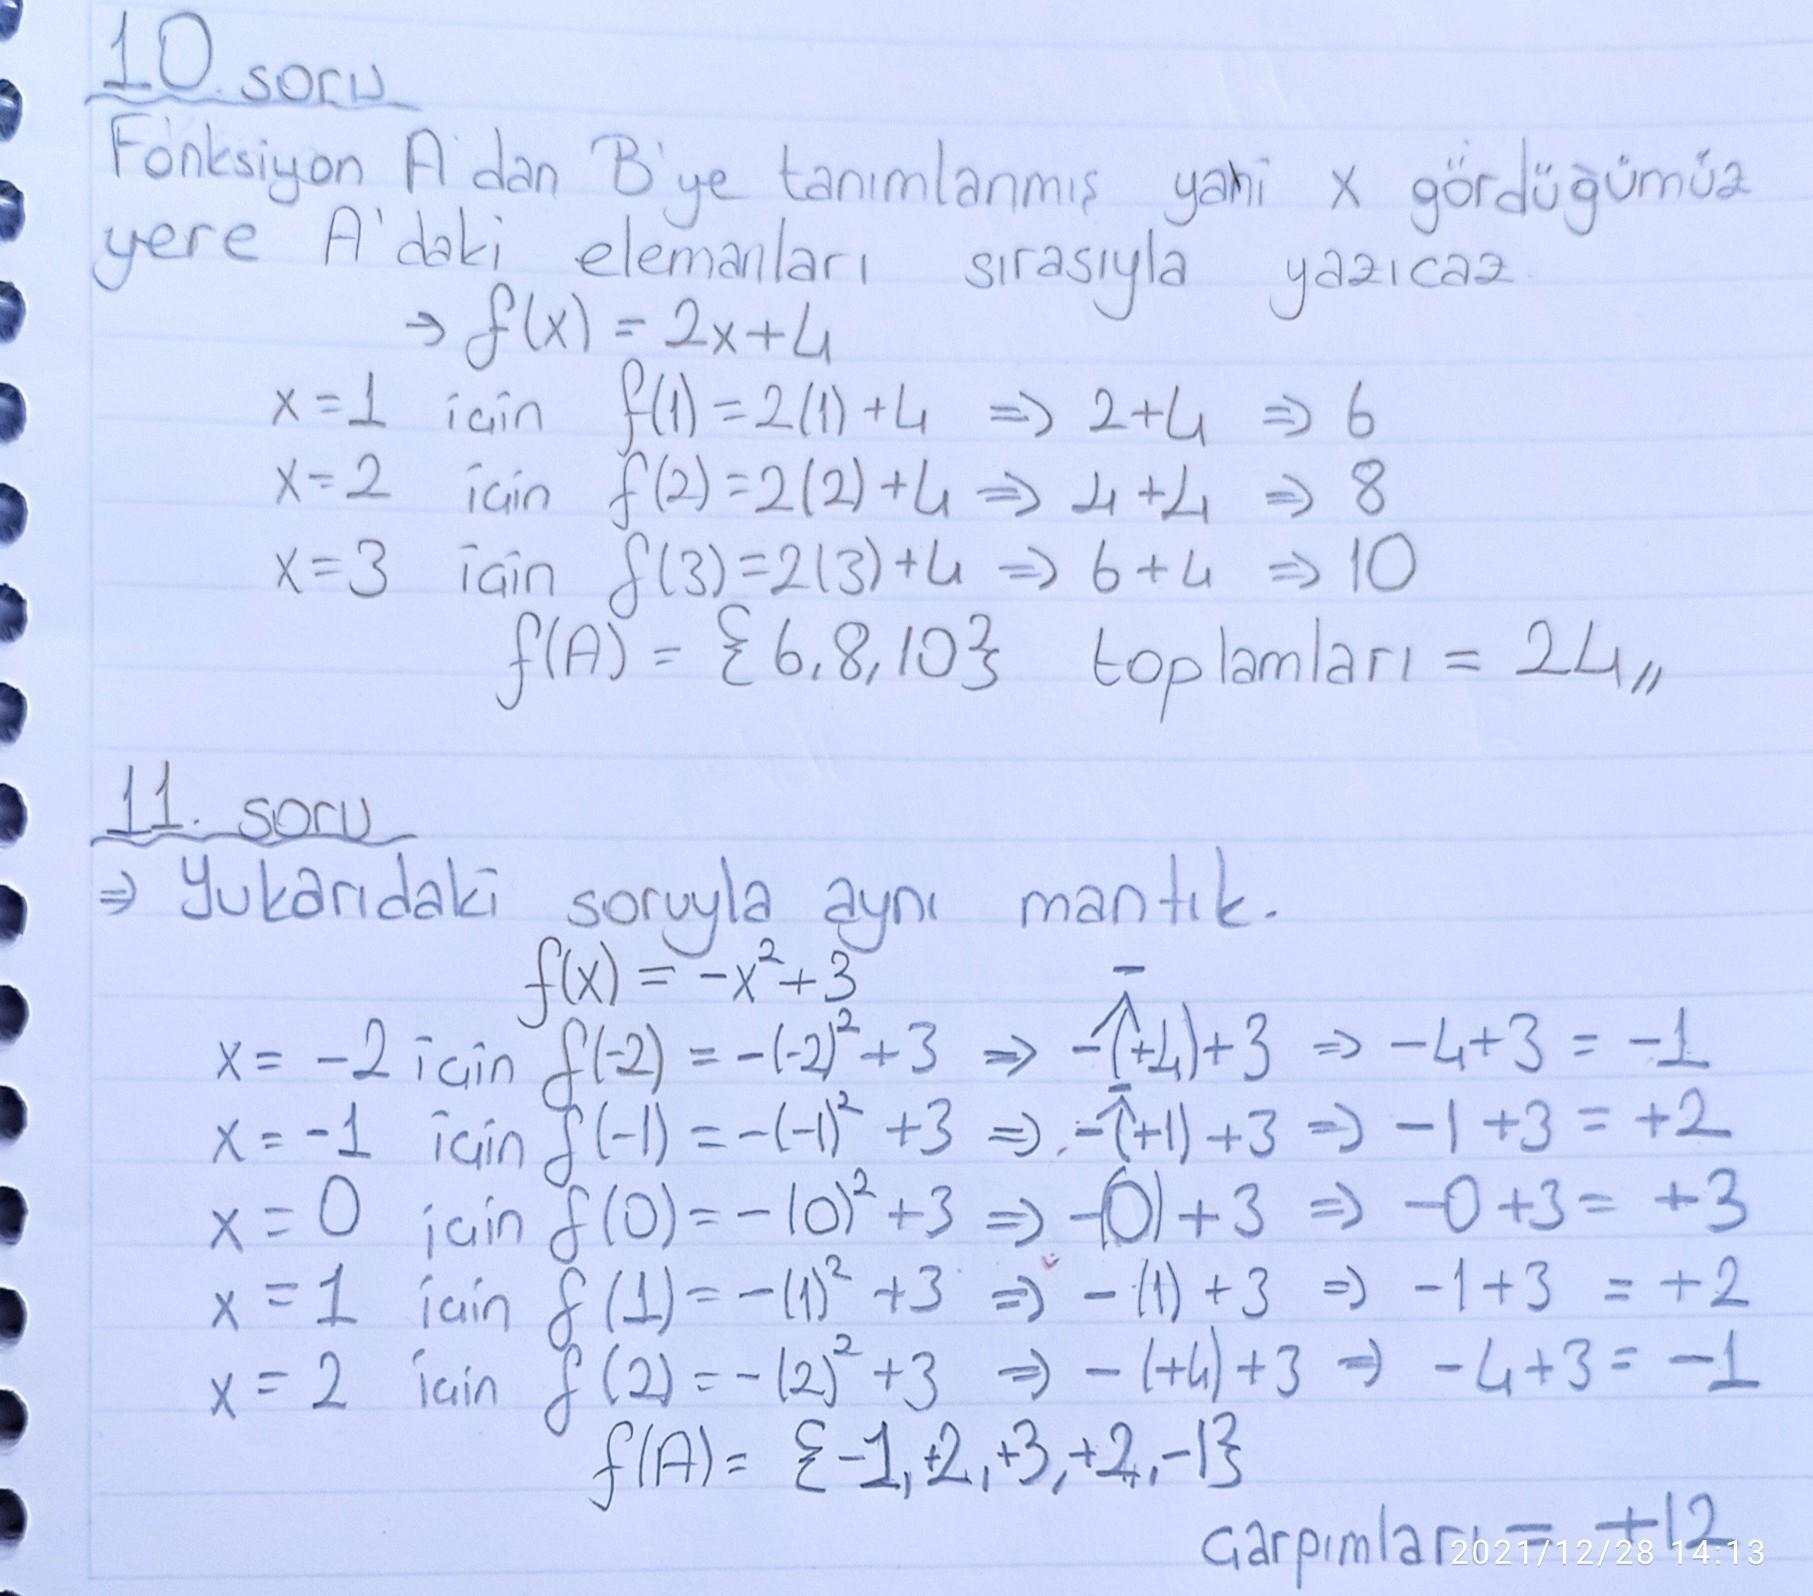 10. soru
Fonksiyon A'dan B'ye tanımlanmış yani x gördüğümüz
yere A'daki elemanları sırasıyla yazıcaz.
→ f(x) = 2x+4
x=1 için f(1)=2(1)+4 ⇒ 2+4 ⇒ 6
x=2 için f(2)=2(2)+4 ⇒ 4+4 ⇒ 8
x=3 için f(3)=2(3)+4 ⇒ 6+4 ⇒ 10
f(A) = {6,8,10} toplamları = 24,,
11. soru
⇒ Yukarıdaki soruyla aynı mantık.
f(x) = -x²+3
x= -2 için f(-2) = -(-2)²+3 ⇒ -(+4)+3 ⇒ -4+3 = -1
x= -1 için f(-1) = -(-1)² +3 ⇒ -(+1)+3 ⇒ -1+3 = +2
x=0 için f(0)= -(0)²+3 ⇒ -(0)+3 ⇒ -0+3= +3
x=1 için f(1)= -(1)² +3 ⇒ -(1)+3 ⇒ -1+3 = +2
x=2 için f(2)= -(2)²+3 ⇒ -(+4)+3 ⇒ -4+3= -1
f(A)= {-1,+2,+3,+2,-1}
çarpımları = +12
2021/12/28 14:13